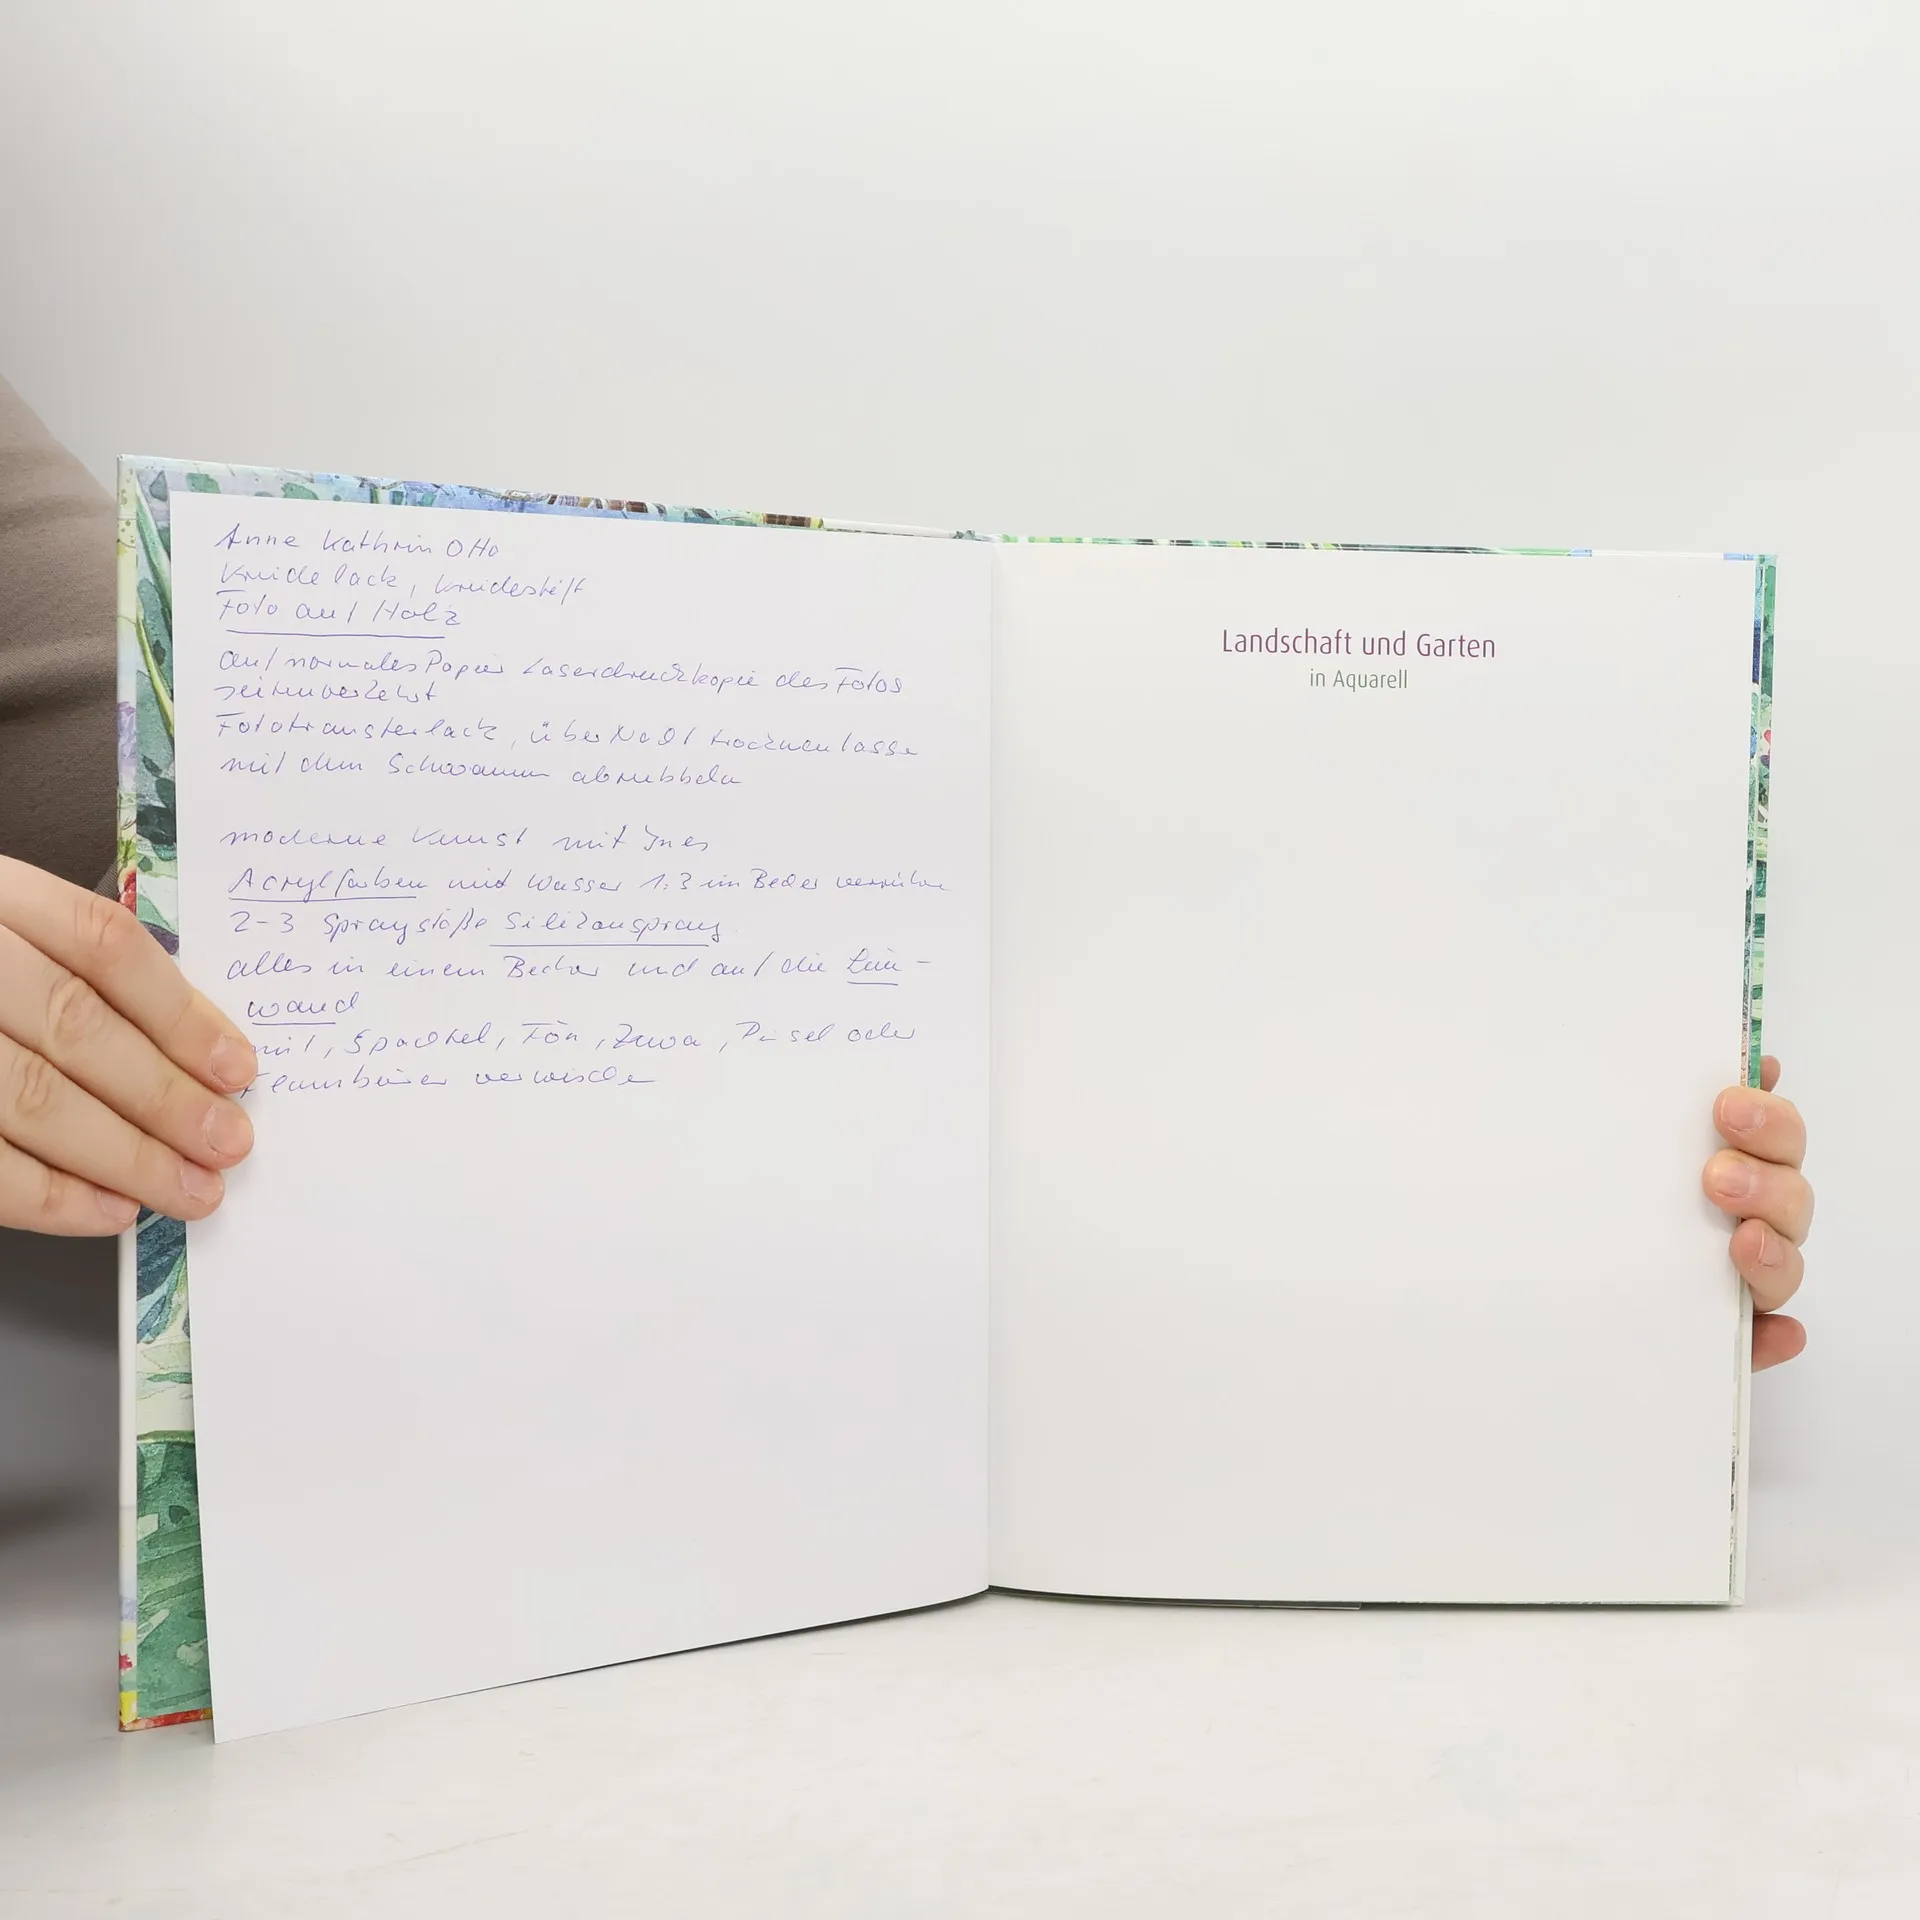 Anne Kathrin Otto
Kreidelack, Kreidestift
Foto auf Holz
auf normales Papier Laserdruckkopie des Fotos
seitenverkehrt
Fototransferlack, über Nacht trocknen lassen
mit dem Schwamm abrubbeln
moderne Kunst mit Ines
Acrylfarben mit Wasser 1:3 im Becher verrühren
2-3 Spraystöße Silikonspray
alles in einem Becher und auf die Lein-
wand
mit, Spachtel, Fön, Pinsel oder
verwischen
Landschaft und Garten
in Aquarell